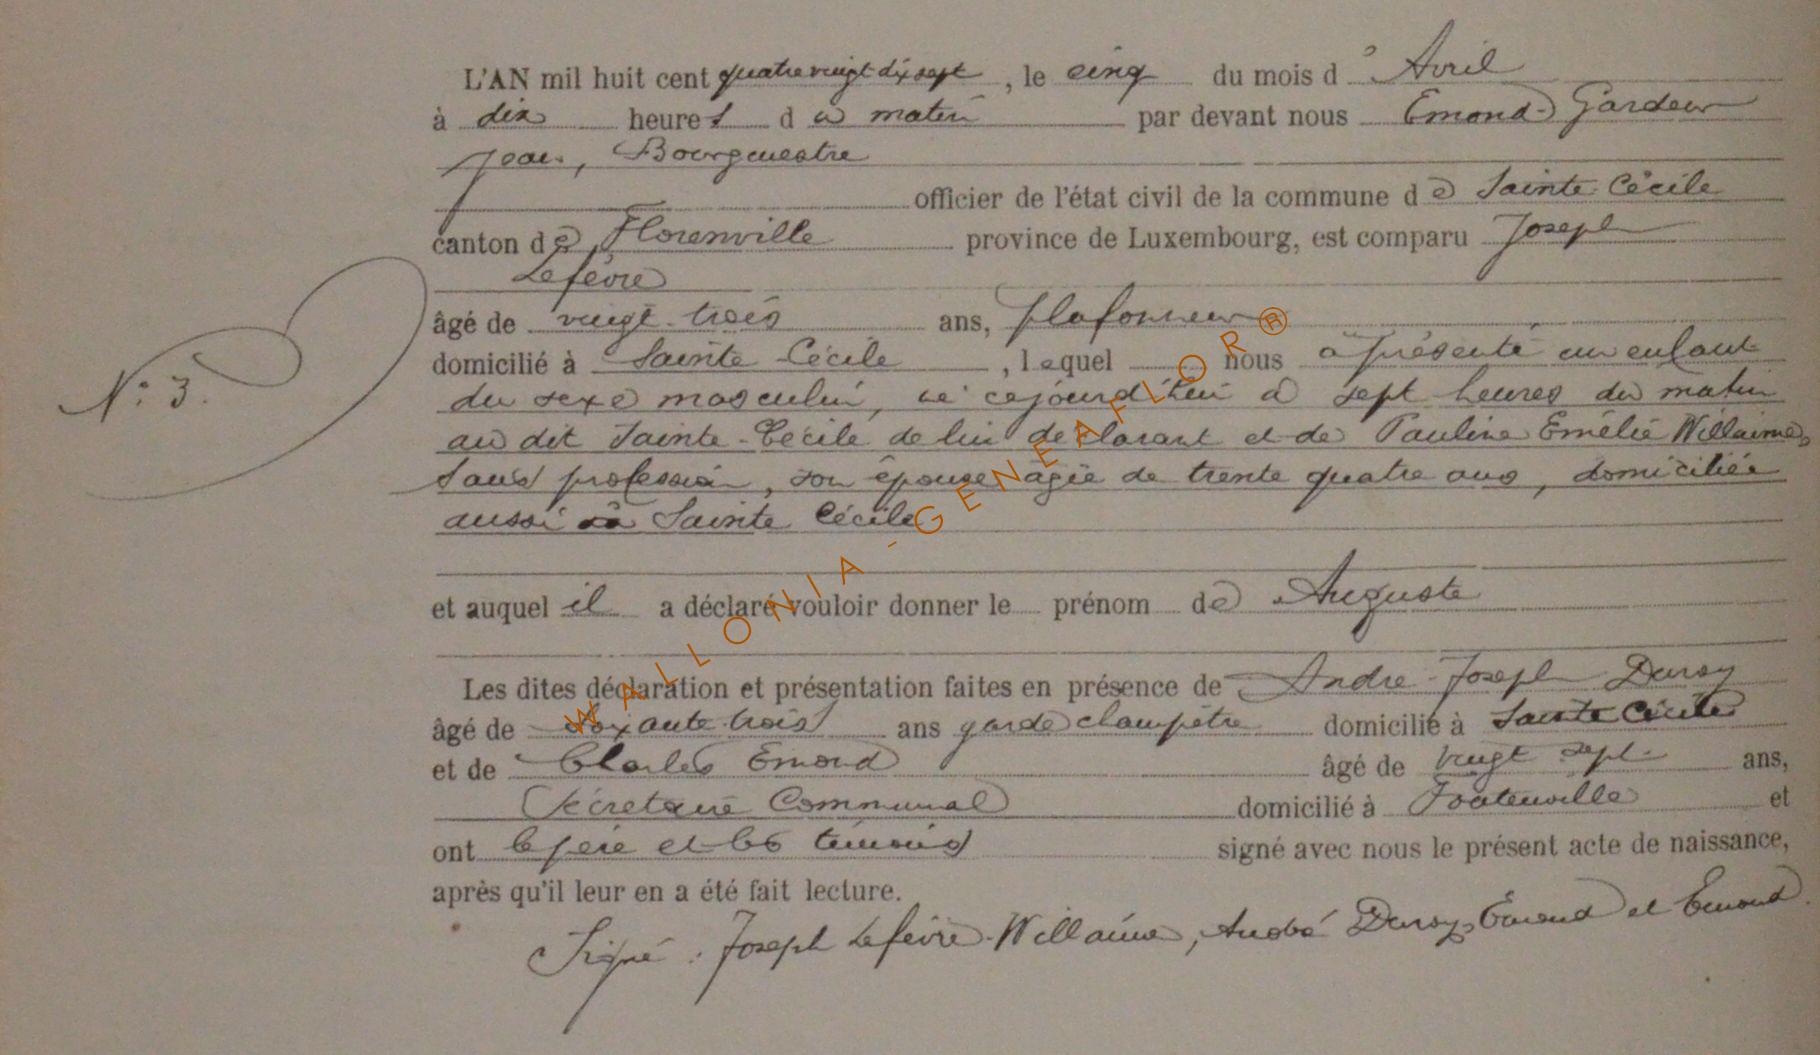 L'AN mil huit cent quatre vingt dix sept, le cinq du mois d'Avril
à dix heures du matin par devant nous Emond-Gardeur
Jean, Bourgmestre
officier de l'état civil de la commune de Sainte Cécile
canton de Florenville province de Luxembourg, est comparu Joseph
Lefèvre
âgé de vingt-trois ans, plafonneur
domicilié à Sainte Cécile, lequel nous a présenté un enfant
N° 3.
du sexe masculin, né cejourd'hui à sept heures du matin
au dit Sainte-Cécile de lui déclarant et de Pauline Emélie Willaime,
sans profession, son épouse agée de trente quatre ans, domiciliée
aussi à Sainte Cécile
et auquel il a déclaré vouloir donner le prénom de Auguste
Les dites déclaration et présentation faites en présence de André-Joseph Duroy
âgé de soixante trois ans garde champêtre domicilié à Sainte Cécile
et de Charles Emond âgé de vingt sept ans,
Sécretaire Communal domicilié à Fontenoille et
ont le père et les témoins signé avec nous le présent acte de naissance,
après qu'il leur en a été fait lecture.
Signé : Joseph Lefèvre-Willaime, André Duroy, Émond et Emond.
WALLONIA-GENEAFLOR®